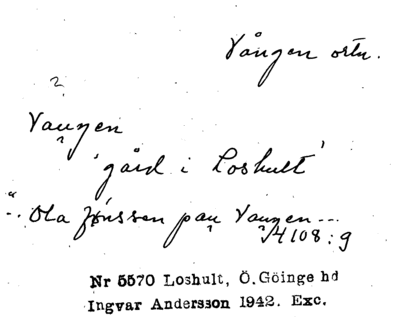 Vången ortn.
?
Vaŋen
'gård i Loshult'
"... Ola jönssen pau Vaŋen ---
4108:9
Nr 5570 Loshult, Ö.Göinge hd
Ingvar Andersson 1942. Exc.